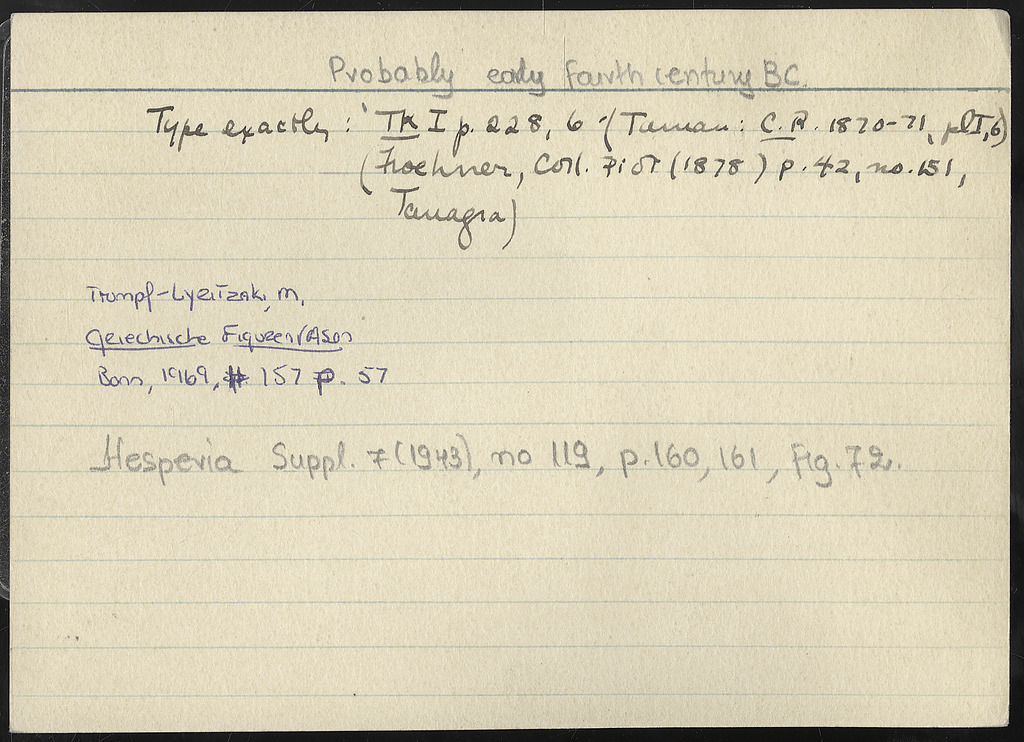 Probably early fourth century B.C.
Type exactly: TK I p. 228, 6 (Taman: C.R. 1870-71, pl I,6)
(Froehner, Coll. Piot (1878) p. 42, no. 151,
Tanagra)
Trumpf-Lyritzaki, M.
Griechische Figurenvasen
Bonn, 1969, # 157 p. 57
Hesperia Suppl. 7 (1943), no 119, p. 160, 161, Fig. 72.